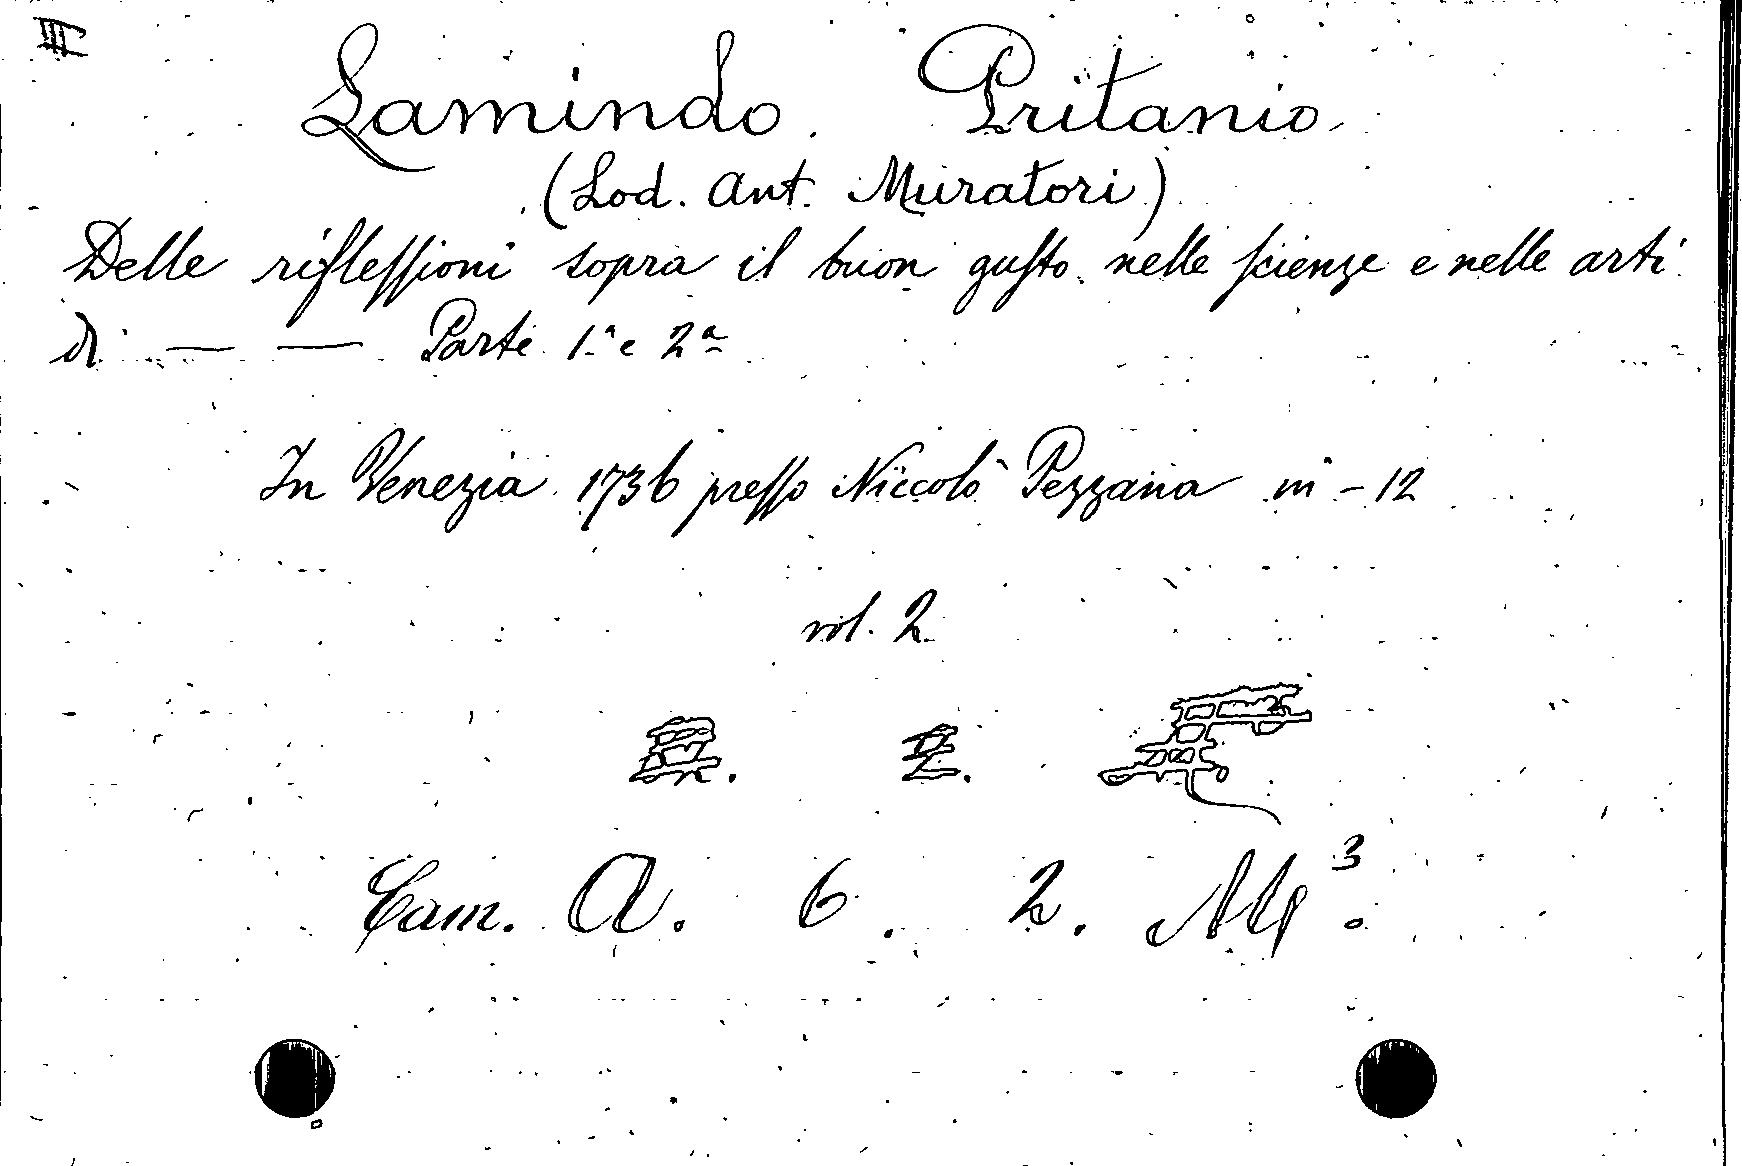 III
Lamindo Pritanio
(Lod. Ant. Muratori)
Delle rifleſsioni sopra il buon guſto nelle ſcienze e nelle arti
di — — Parte 1ª e 2ª
In Venezia 1736 preſso Niccolò Pezzana in - 12
vol. 2
Cam. A. 6. 2.